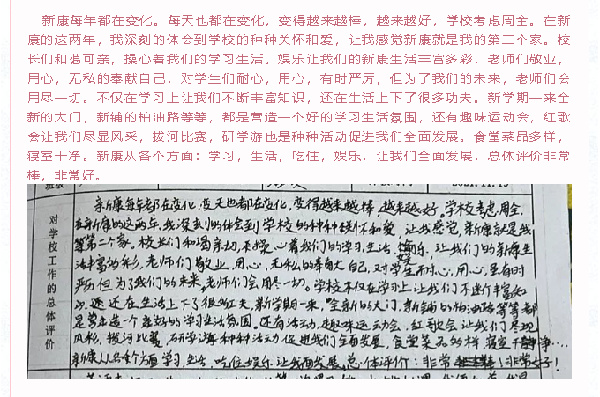 新康每年都在变化。每天也都在变化，变得越来越棒，越来越好，学校考虑周全。在新
康的这两年，我深刻的体会到学校的种种关怀和爱，让我感觉新康就是我的第二个家。校
长们和蔼可亲，操心着我们的学习生活，娱乐让我们的新康生活丰富多彩，老师们敬业，
用心，无私的奉献自己，对学生们耐心，用心，有时严厉，但为了我们的未来，老师们会
用尽一切。不仅在学习上让我们不断丰富知识，还在生活上下了很多功夫。新学期一来全
新的大门，新铺的柏油路等等，都是营造一个好的学习生活氛围，还有趣味运动会，红歌
会让我们尽显风采，拔河比赛，研学游也是种种活动促进我们全面发展。食堂菜品多样，
寝室干净。新康从各个方面：学习，生活，吃住，娱乐，让我们全面发展，总体评价非常
棒，非常好。
对学校工作的总体评价
新康每年都在变化，每天也都在变化，变得越来越棒，越来越好。学校考虑周全，
在新康的这两年，我深刻的体会到学校的种种关怀和爱，让我感觉，新康就是我
第二个家。校长们和蔼可亲，操心着我们的学习生活，娱乐，让我们的新康生
活丰富多彩，老师们敬业，用心，无私的奉献自己，对学生耐心，用心，虽有时
严厉，但为了我们的未来，老师们会用尽一切。学校不仅在学习上让我们不断丰富知
识，还在生活上下了很多功夫，新学期一来，全新的大门，新铺的柏油路等等都
是营造一个良好的学习生活氛围，还有活动，趣味运动会，红歌会让我们尽现
风彩，拔河比赛，研学游种种活动促进我们全面发展，食堂菜品多样，寝室干净…
新康从各个方面学习，生活，吃住娱乐，让我们全面发展，总体评价：非常棒！非常好！